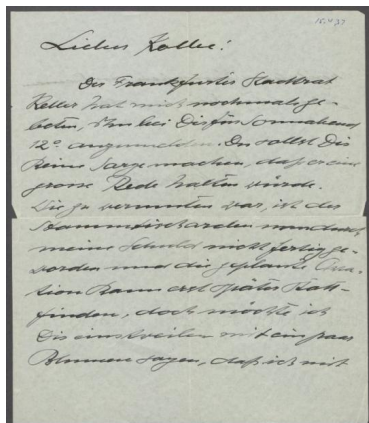 15.4.29
Lieber Kolbe!
Der Frankfurter Stadtrat
Keller hat mich nochmals ge-
beten, ihn bei Dir für Sonnabend
12° anzumelden. Du sollst Dir
keine Sorge machen, daß er eine
grosse Rede halten würde.
Wie zu vermuten war, ist der
durch
meine Schuld nicht fertig ge-
worden und die geplante Ova-
tion kann erst später statt-
finden, doch möchte ich
Dir einstweilen mit ein paar
Blumen sagen, daß ich mit